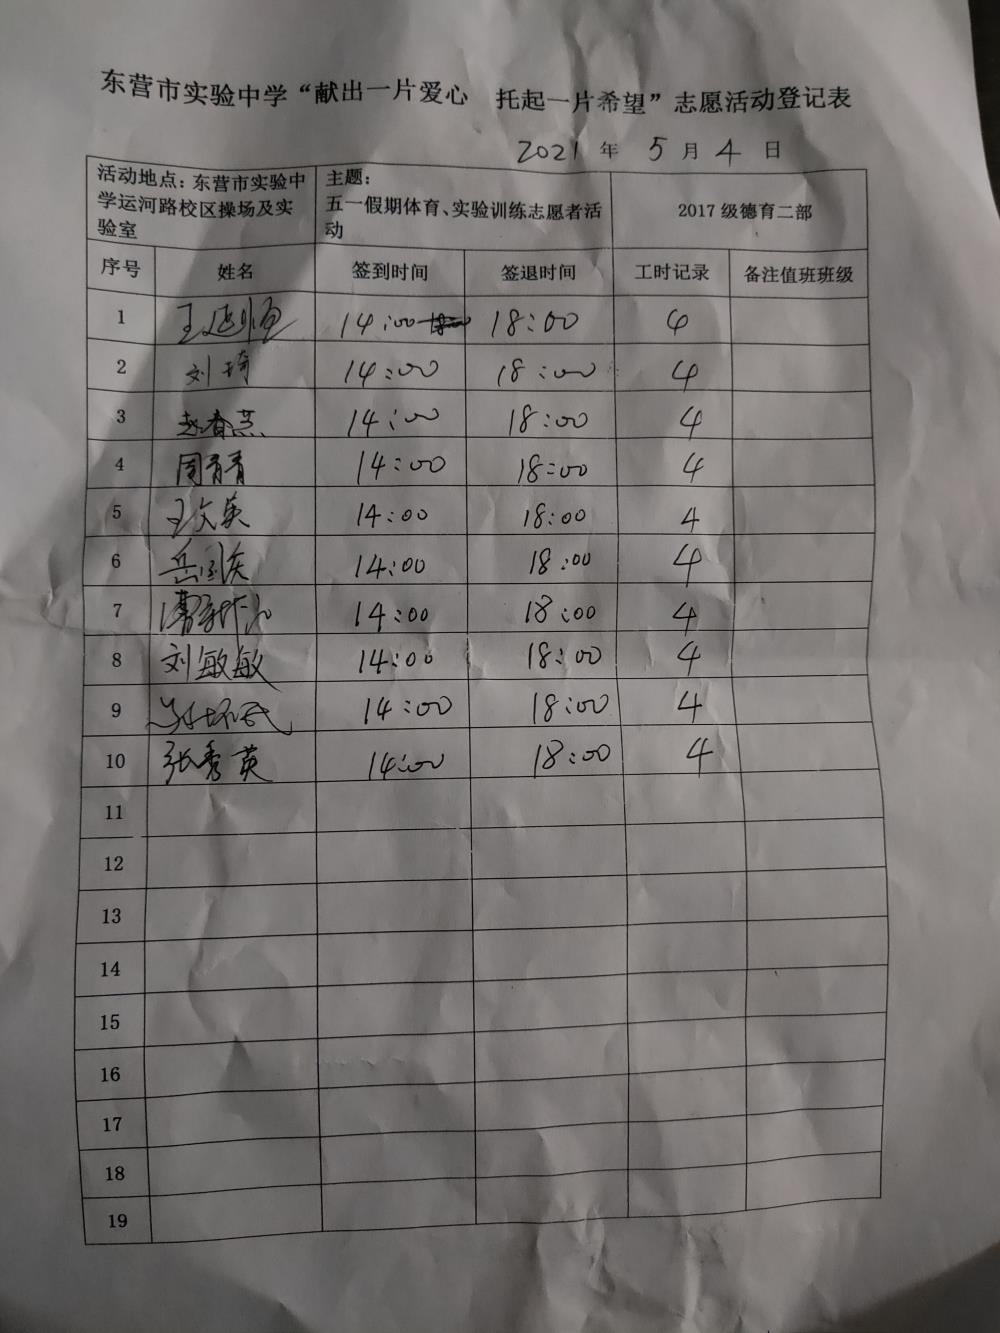 东营市实验中学“献出一片爱心 托起一片希望”志愿活动登记表
2021 年 5 月 4 日
活动地点：东营市实验中学运河路校区操场及实验室 主题：五一假期体育、实验训练志愿者活动 2017 级德育二部
序号 姓名 签到时间 签退时间 工时记录 备注值班班级
1 14:00 18:00 4
2 刘琦 14:00 18:00 4
3 赵春燕 14:00 18:00 4
4 周青青 14:00 18:00 4
5 王文英 14:00 18:00 4
6 14:00 18:00 4
7 14:00 18:00 4
8 刘敏敏 14:00 18:00 4
9 14:00 18:00 4
10 张秀英 14:00 18:00 4
11
12
13
14
15
16
17
18
19